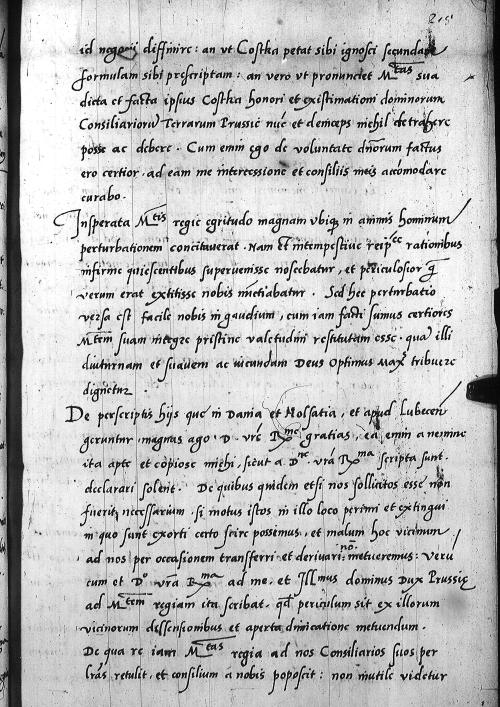 215
id negocij diffinire: an vt Costka petat sibi ignosci secundum
formulam sibi prescriptam: an vero vt pronunciet Mtas sua
dicta et facta ipsius Costka honori et existimationi dominorum
Consiliariorum Terrarum Prussie nunc et deinceps nichil detrahere
posse ac debere. Cum enim ego de voluntate dnorum factus
ero certior, ad eam me intercessione et consiliis meis accomodare
curabo.
Insperata Mtis regie egritudo magnam vbique in animis hominum
perturbationem concitauerat. Nam et intempestiue reipce rationibus
infirme quiescentibus superuenisse noscebatur, et periculosior q
verum erat extitisse nobis nuntiabatur. Sed hec perturbatio
versa est facile nobis in gaudium, cum iam facti sumus certiores
Mtem suam integre pristine valetudini restitutam esse. qua illi
diuturnam et suauem ac iucundam Deus Optimus Max tribuere
dignetur.
De perscriptis hijs que in Dania et Holsatia, et apud Lubecen
geruntur magnas ago D. vre Rme gratias, ea enim a nemine
ita apte et copiose michi, sicut a Dne vra Rma scripta sunt
declarari solent. De quibus quidem etsi nos sollicitos esse non
fuerit necessarium, si motus istos in illo loco perimi et extingui
in quo sunt exorti certo scire possemus, et malum hoc vicinum
ad nos per occasionem transferri et deriuari no metueremus: veru
cum et Do vra Rma ad me, et Illmus dominus Dux Prussie
ad Mtem regiam ita scribat, qd periculum sit ex illorum
vicinorum dissensionibus et aperta dimicatione metuendum.
De qua re iam Mtas regia ad nos Consiliarios suos per
lras retulit, et consilium a nobis poposcit: non inutile videtur